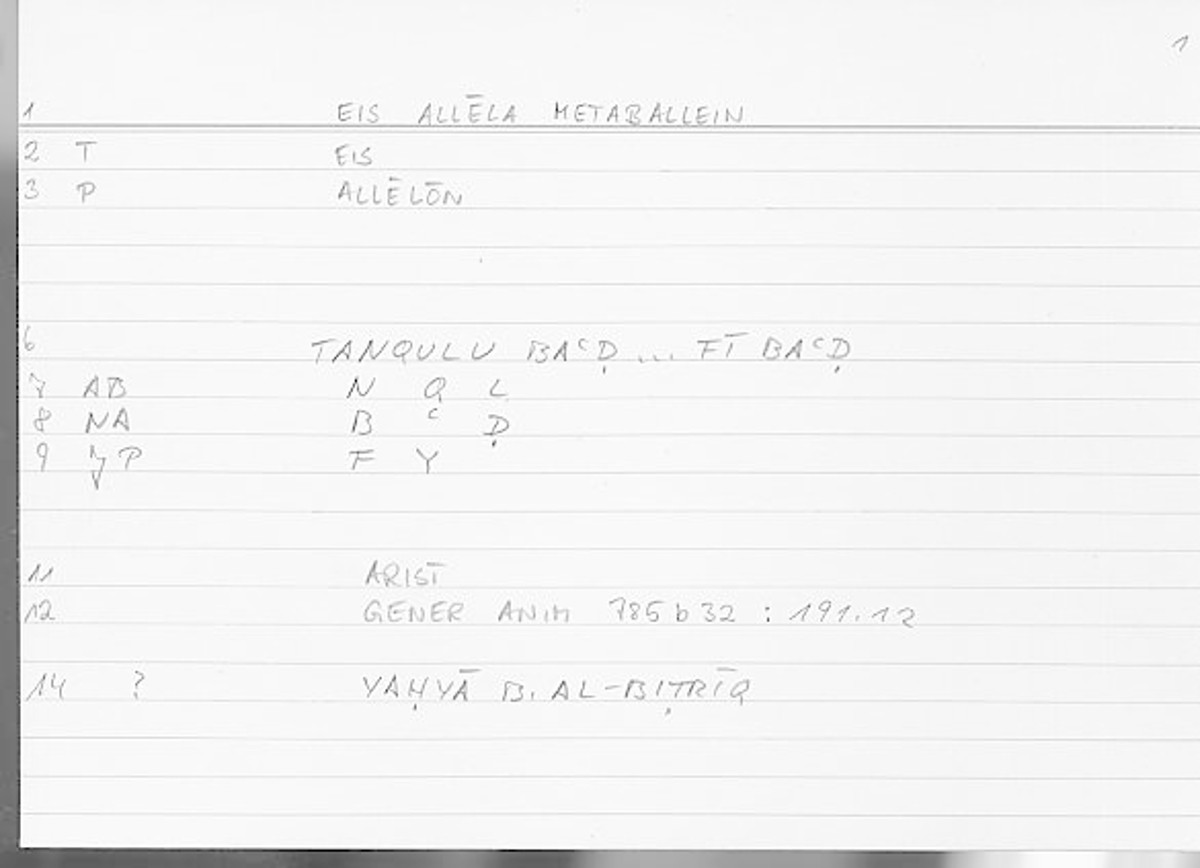 1
1 EIS ALLĒLA METABALLEIN
2 T EIS
3 P ALLĒLŌN
6 TANQULU BAʿḌ ... FĪ BAʿḌ
7 AB N Q L
8 NA B ʿ Ḍ
9 P F Y
11 ARIST
12 GENER ANIM 785 b 32 : 191.12
14 ? YAḤYĀ B. AL-BIṬRĪQ